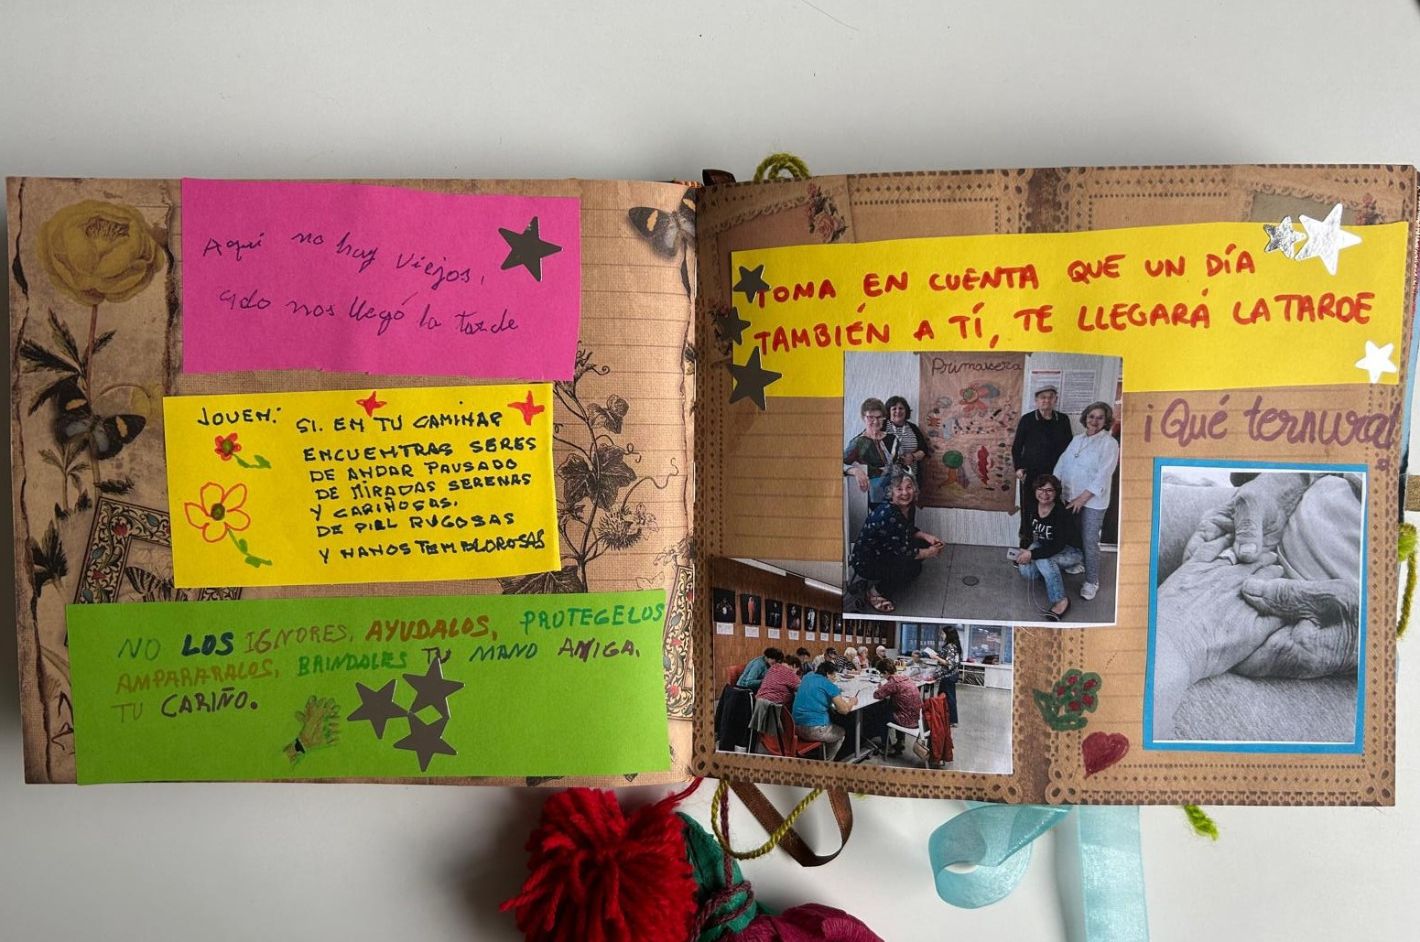 Aquí no hay viejos,
qdo nos llegó la tarde
JOVEN: SI. EN TU CAMINAR
ENCUENTRAS SERES
DE ANDAR PAUSADO
DE MIRADAS SERENAS
Y CARIÑOSAS.
DE PIEL RUGOSAS
Y MANOS TEMBLOROSAS
NO LOS IGNORES, AYUDALOS, PROTEGELOS
AMPARARALOS, BRINDALES TU MANO AMIGA.
TU CARIÑO.
TOMA EN CUENTA QUE UN DÍA
TAMBIÉN A TÍ, TE LLEGARÁ LA TARDE
Primavera
¡Qué ternura!